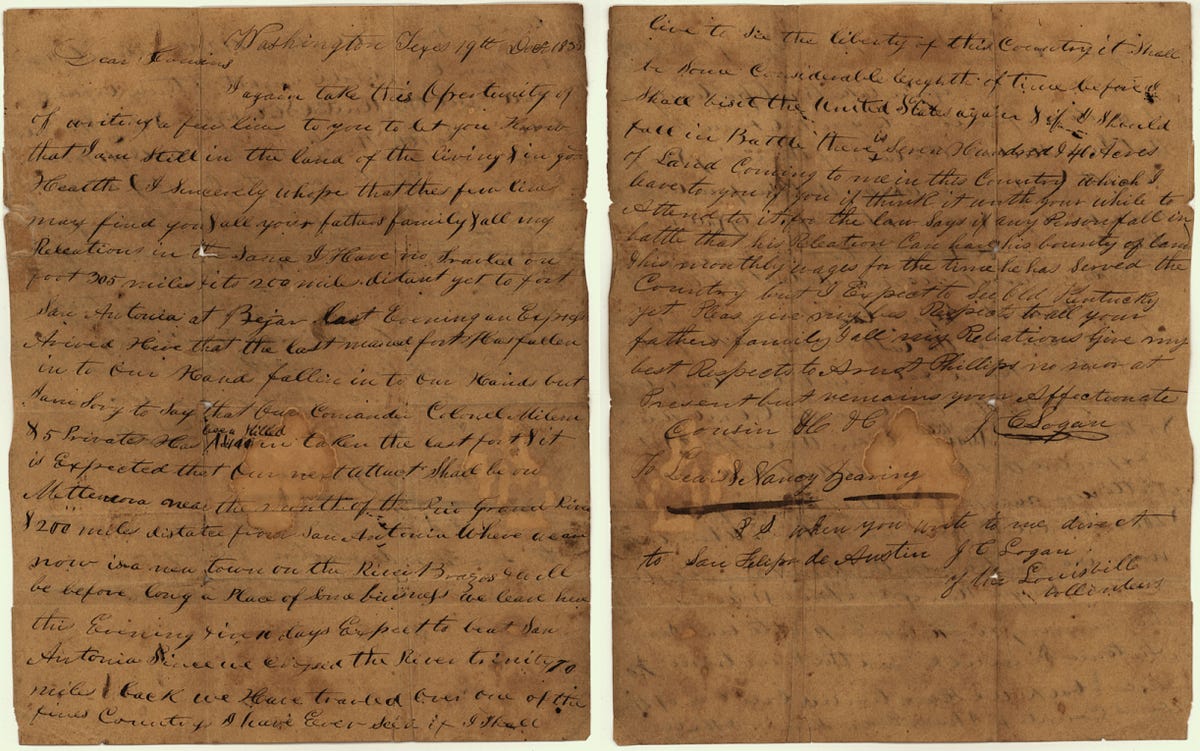 Washington Texes 19th Dec 1835
Dear Cousins
I again take this Opertunity of
of writing a few lines to you to let you Know
that I am Still in the land of the living & in go
Health & I Sincerely whope that thes few lines
may find you & all your fathers family & all my
Releations in the Same I Have no traveled on
foot 305 miles & its 200 miles distant yet to fort
San Antonia at Bejar last Evening an Express
Arived Here that the last fort Has fallen
in to Our Hand fallin in to Our Hands but
I am Sory to Say that Our Comander Colonel Milem
& 5 Privates Has been Killed in taken the last fort & it
is Expected that Our next attact Shall be on
near the mouth of the Rio Grand River
& 200 miles distate from San Antonia Where we are
now is a new town on the River Brazos & will
be before long a Place of Some buisness we leave here
this Evening & in 10 days Expect to be at San
Antonia Since we crossed the River trinity 70
miles back we Have traveled Over one of the
fines Country I have Ever Seen if I Shall
live to See the liberty of this Country it Shall
be Some Considerable lenghth of time before I
Shall visit the United States again & if I Should
fall in Battle there is Seven Hundred & 40 Acres
of Land Coming to me in this Country which I
leave to you if you think it worth your while to
Attend to it for the law Says if any Person fall in
battle that his Releation Can have his bounty of land
& his monthly wages for the time he has Served the
Country but I Expect to See Old Kentucky
yet Pleas give my bes Respects to all your
fathers family & all my Releations Give my
best Respects to Arnst Phillips no more at
Present but remains your Affectionate
Cousin &C &C J C Logan
To Lewis & Nancy Dearing
P S when you write to me direct
to San Felipo de Austin J C Logan
of the Louisvill
vollenters